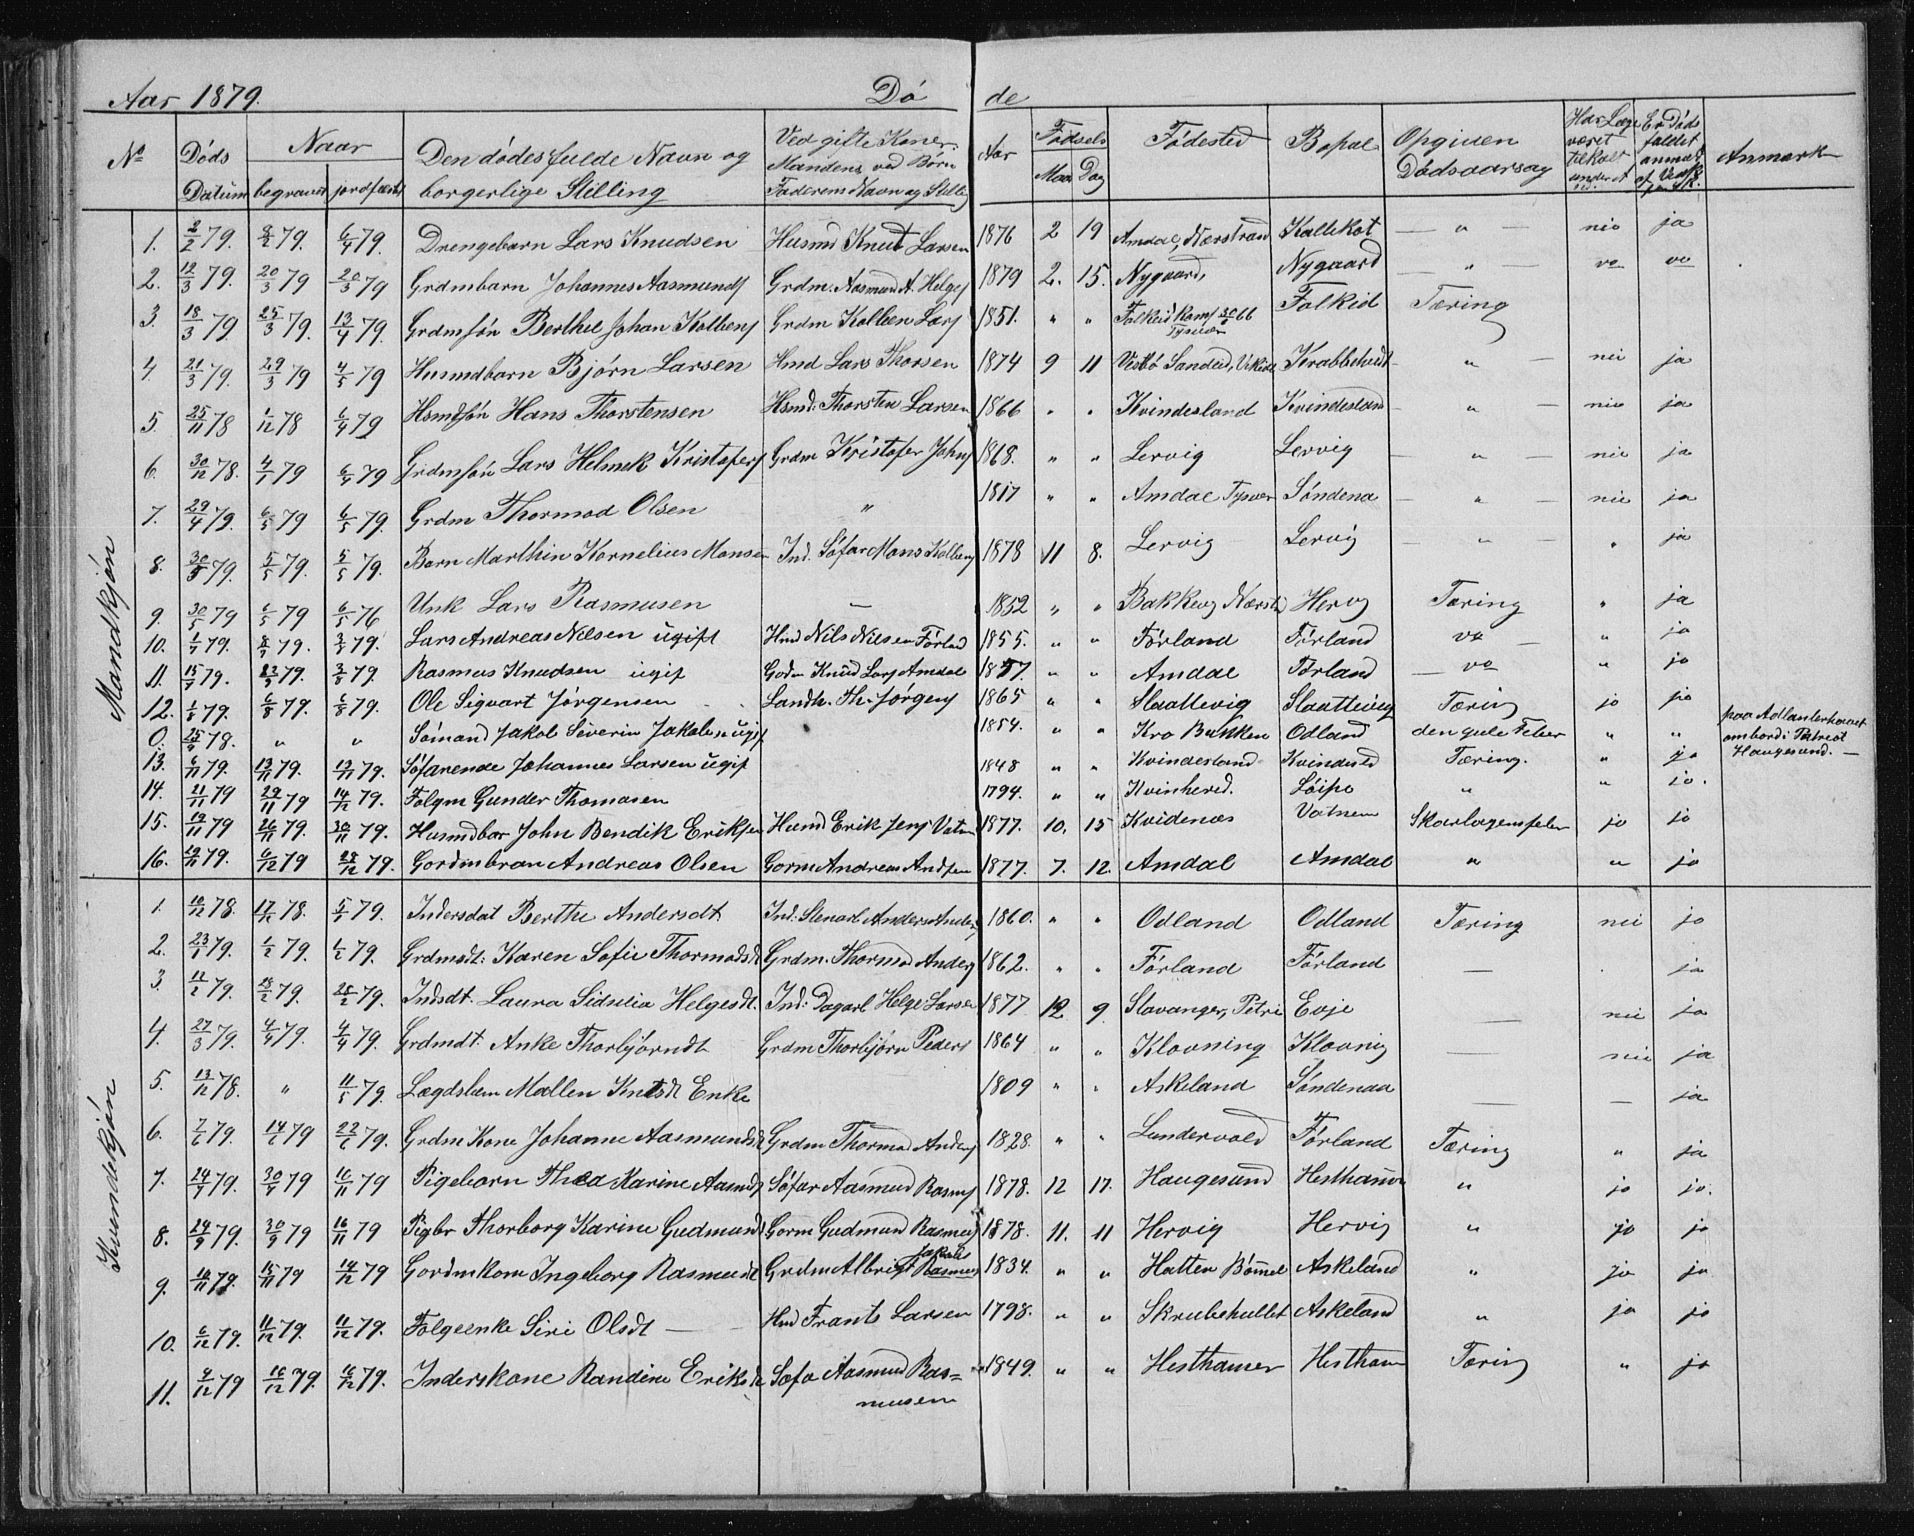 Aar 1879. Dö de
No Döds Datum Naar begravet jordfæstet Den dödes fulde Navn og borgerlige Stilling Ved gifte Koner Mandens, ved Börn Faderens Navn og Stilling Aar Födsels Maa Dag Födested Bopæl Opgiven Dödsaarsag Har Læge været tilkaldt Er Dödsfaldet anmeldt Anmærk
Mandkjön
1. 2/2 79. 8/2 79. 6/4 79. Drengebarn Lars Knudsen Husmd Knut Larsen 1876 2 19 Amdal, Nærstrand Kallekot — " — nei ja
2. 12/3 79. 20/3 79 20/3 79 Grdmbarn Johannes Aasmunds Grdm. Aasmund A. Helges 1879 2. 15. Nygaard, Nygaard — " — vo vo
3. 18/3 79. 25/3 79. 13/4 79. Grdmsön Berthel Johan Kolbens Grdm Kolben Lars 1851. " " Falkeid Konf 30/9 66 Tysvær Falkeid Tæring
4. 21/3 79. 29/3 79 4/5 79 Husmdbarn Björn Larsen Hmd Lars Thorsen 1874 9 11 Vestbö Sandeid, Krabbetveit " — nei ja
5. 25/11 78 1/12 78 6/4 79 Hsmdsön Hans Thorstensen Hsmd: Thorsten Larsen 1866 " " Kvindesland Kvindesland " — nei ja
6. 30/12 78. 4/1 79 6/4 79 Grdmsön Lars Helmek Kristofers Grdm Kristofer Johns 1868. " " Lervig Lervig — " — nei ja
7. 29/4 79. 6/5 79 6/5 79. Grdm Thormod Olsen " 1817 " " Amdal Tysvær Söndena — " — nei ja
8. 30/3 79. 5/5 79. 5/5 79. Barn Marthin Kornelius Monsen Ind. Söfar Mons Kolbens 1878 11 8. Lervig Lervig — " — " ja
9. 30/5 79 6/5 79 6/5 76 Unk Lars Rasmusen — 1852 " " Bakkevig Nærst. Hervig Tæring " ja
10. 1/7 79. 8/7 79. 3/8 79. Lars Andreas Nilsen ugift Hmd Nils Nilsen Förland 1855. " " Förland Förland vo — " ja
11. 15/7 79. 23/7 79. 3/8 79. Rasmus Knudsen ugif Gdm Knud Lars Amdal 1857. " " Amdal Förland — vo " jo
12. 1/8 79. 6/8 79. 6/8 79. Ole Sigvart Jörgensen Landh. Th. Jörgens 1865 " " Slaattevig Slaattevig Tæring jo jo
0. 25/9 78. " " Sömand Jakob Severin Jakobsen ugif 1854. " " Kro Bakken Odland den gule Feber " " paa Adlanterhavet ombord i Patriot Haugesund. —
13. 6/11 79. 13/11 79. 13/11 79. Söfarende Johannes Larsen ugif 1848 " " Kvindesland Kvindesld Tæring. " jo
14. 21/11 79 29/11 79 14/12 79. Folgm Gunder Thomasen 1794. " " Kvinhered. Löipe " " jo.
15. 19/11 79 26/11 79. 30/11 79. Husmdbar John Bendik Eriksen Husmd Erik Jens Vatn 1877. 10. 15 Kvidenæs Vatnem Skarlagensfeber jo jo
16. 79. 6/12 79 28/12 79. Gordmbran Andreas Olsen Gorm Andreas Andsen 1877. 7. 12. Amdal Amdal " " jo
Kvindekjön
1. 10/12 78. 17/12 78. 5/1 79. Indersdat Berthe Andersdt. Ind: Stenarb Anders Anders 1860. " " Odland Odland Tæring nei jo
2. 23/1 79. 1/2 79. 1/2 79. Grdmsdt: Karen Sofie Thormodsdt Grdm. Thormod Anders 1862. " " Förland Förland — . ja
3. 12/2 79. 28/2 79. 28/2 79. Indsdt. Laura Sidselia Helgesdt. Ind: Dagarb Helge Larsen 1877 12 9. Stavanger, Petri Eoje — nei ja
4. 27/3 79. 4/4 79. 4/4 79. Grdmdt. Anke Thorbjörndt Grdm Thorbjörn Peders 1864 " " Klovning Klovnig — nei ja
5. 13/12 78. " 11/5 79. Lægdslem Mallen Knutsdt Enke 1809 " " Askeland Söndenaa — — ja
6. 7/6 79. 14/6 79 22/6 79. Grdm Kone Johanne Aasmundsdt Grdm Thormod Anders 1828. " " Lundervold Förland Tæring " ja
7. 24/9 79. 30/9 79 16/11 79 Pigebarn Thea Karine Aasmds Söfar Aasmud Rasms 1878. 12 17. Haugesund Hesthamer " jo jo.
8. 24/9 79. 30/9 79 16/11 79 Pigbr Thorborg Karine Gudmunds Gorm Gudmund Rasmus 1878. 11. 11 Hervig Hervig " jo jo
9. 10/11 79. 15/11 79 14/12 79 Gordmkone Ingeborg Rasmusdt Grdm Albrigt Rasmus Jakobs 1834. " " Hatten Bömmel Askeland " jo jo
10. 6/12 79. 11/12 79. 11/12 79. Folgeenke Siri Olsdt — Hmd Frants Larsen 1798. " " Skrubehullet Askeland " ja jo
11. 9/12 79 16/12 79. 16/12 79. Inderskone Randine Eriksdt Sofa Aasmud Rasmusen 1849. " " Hesthamer Hestham Tæring " jo